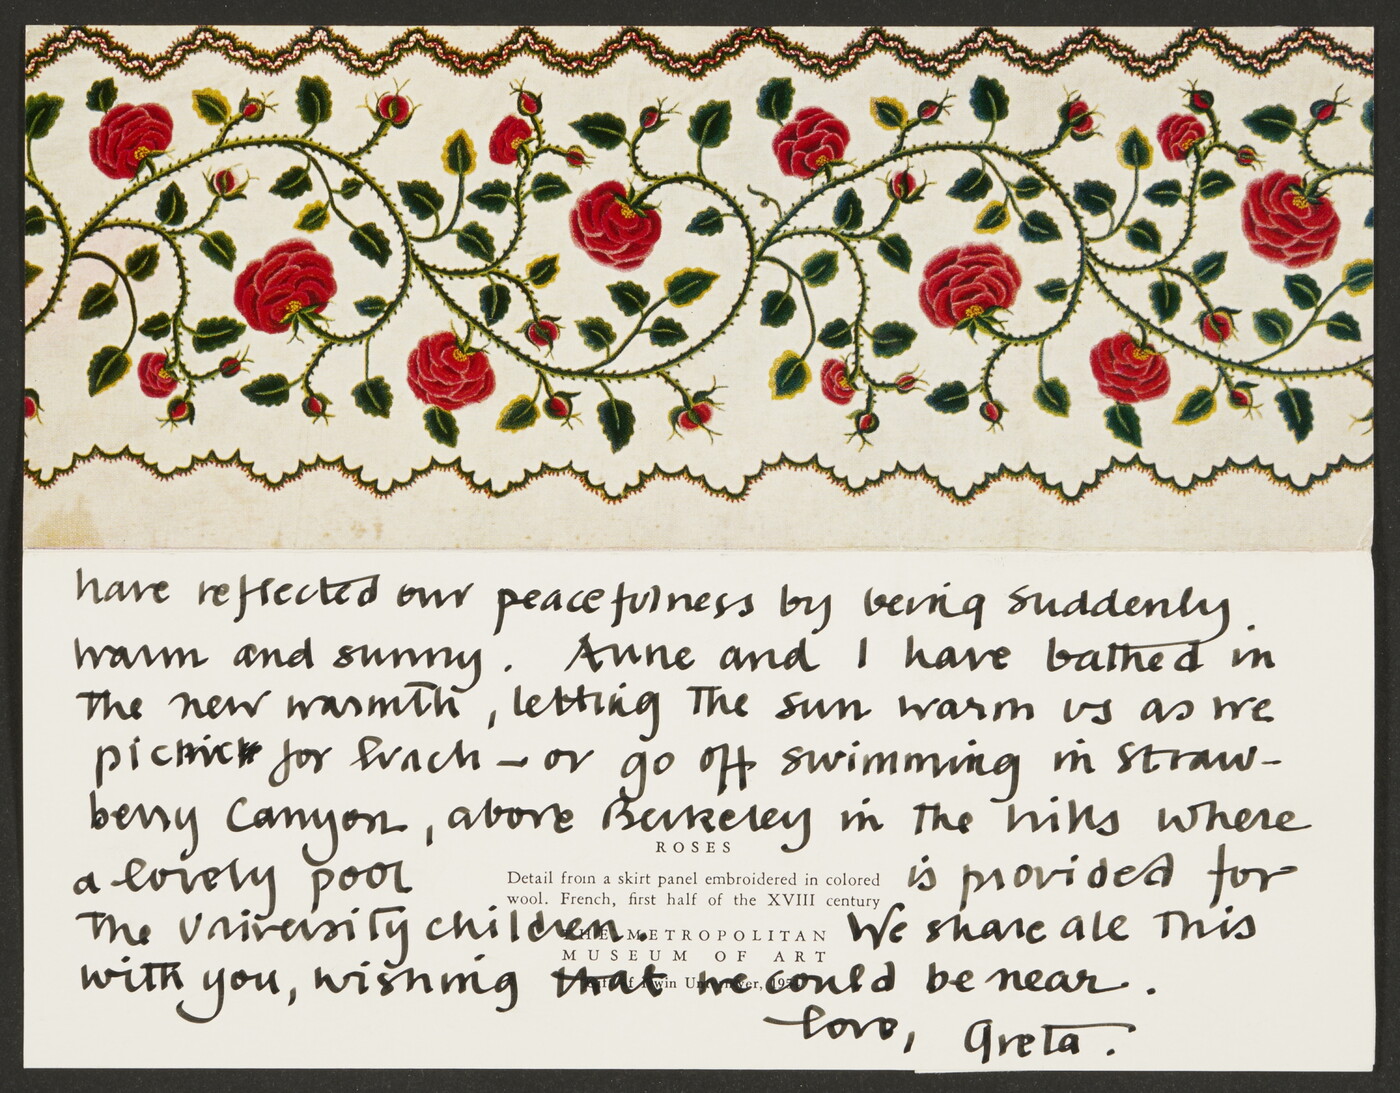 have reflected our peacefulness by being suddenly
warm and sunny. Anne and I have bathed in
the new warmth, letting the sun warm us as we
picnic for lunch – or go off swimming in Straw-
berry Canyon, above Berkeley in the hills where
ROSES
a lovely pool is provided for
Detail from a skirt panel embroidered in colored
wool. French, first half of the XVIII century
the University children. We share all this
THE METROPOLITAN
MUSEUM OF ART
with you, wishing that we could be near.
Gift of Irwin Untermyer,
Love, Greta.